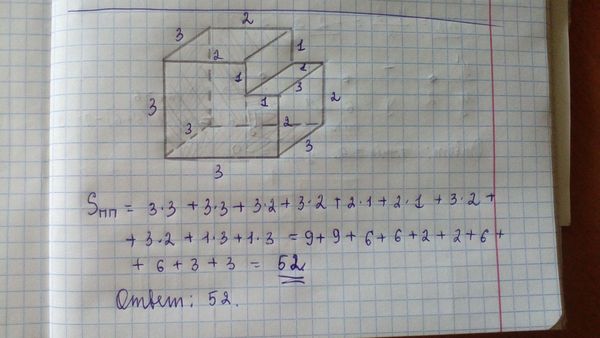 2
3
2
1
1
1
3
3
1
2
2
3
3
3
Sпп = 3·3 + 3·3 + 3·2 + 3·2 + 2·1 + 2·1 + 3·2 +
+ 3·2 + 1·3 + 1·3 = 9 + 9 + 6 + 6 + 2 + 2 + 6 +
+ 6 + 3 + 3 = 52
Ответ: 52.